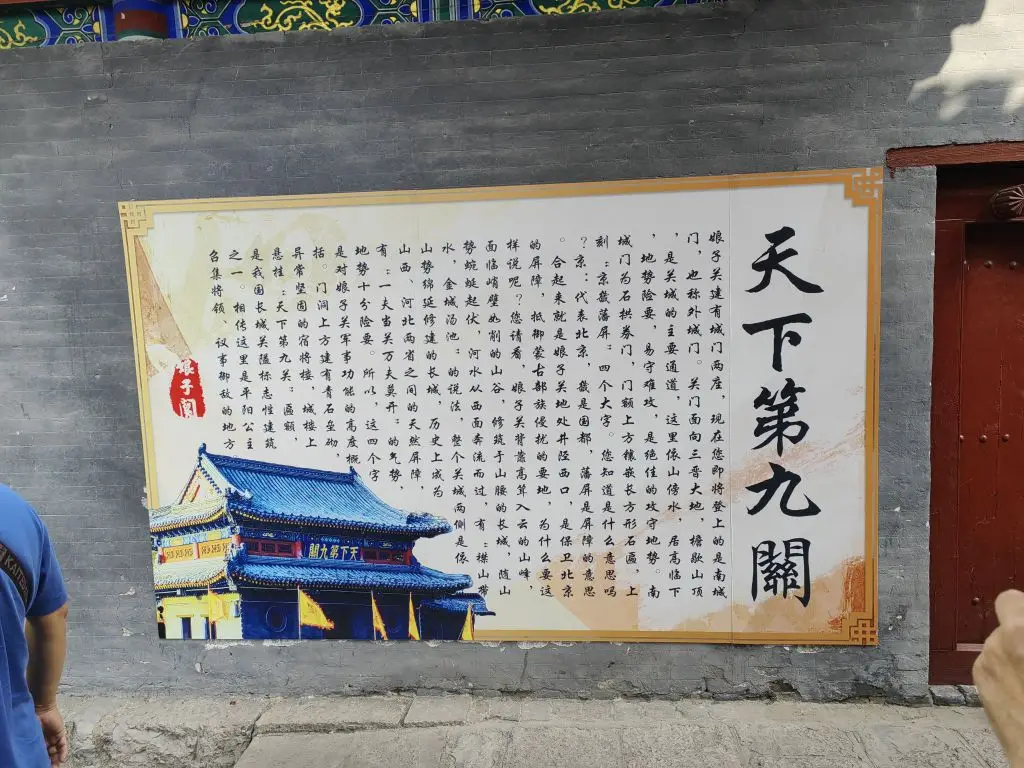 天下第九關
娘子关建有城门两座,现在您即将登上的是南城
门,也称外城门。关门面向三晋大地,檐歇山顶
,是关城的主要通道,这里依山傍水,居高临下
,地势险要,易守难攻,是绝佳的攻守地势。南
城门为石拱券门,门额上方镶嵌长方形石匾,上
刻:京畿藩屏:四个大字。您知道是什么意思吗
?京:代表北京,畿是国都,藩屏是屏障的意思
。合起来就是娘子关地处井陉西口,是保卫北京
的屏障,抵御蒙古部族侵扰的要地,为什么要这
样说呢?您请看,娘子关背靠高耸入云的山峰,
面临峭壁如削的山谷,修筑于山腰的长城,随山
势蜿蜒起伏,河水从西面奔流而过,有:襟山带
水,金城汤池:的说法,整个关城两侧是依
山势绵延修建的长城,历史上城为
山西、河北两省之间的天然屏障,
有:一夫当关万夫莫开:的气势,
地势十分险要。所以,这四个字
是对娘子关军事功能的高度概
括。门洞上方建有青石垒砌,
异常坚固的宿将楼,城楼上
悬挂:天下第九关:匾额,
是我国长城关隘标志性建筑
之一。相传这里是平阳公主
召集将领、议事御敌的地方
娘子關
天下第九關